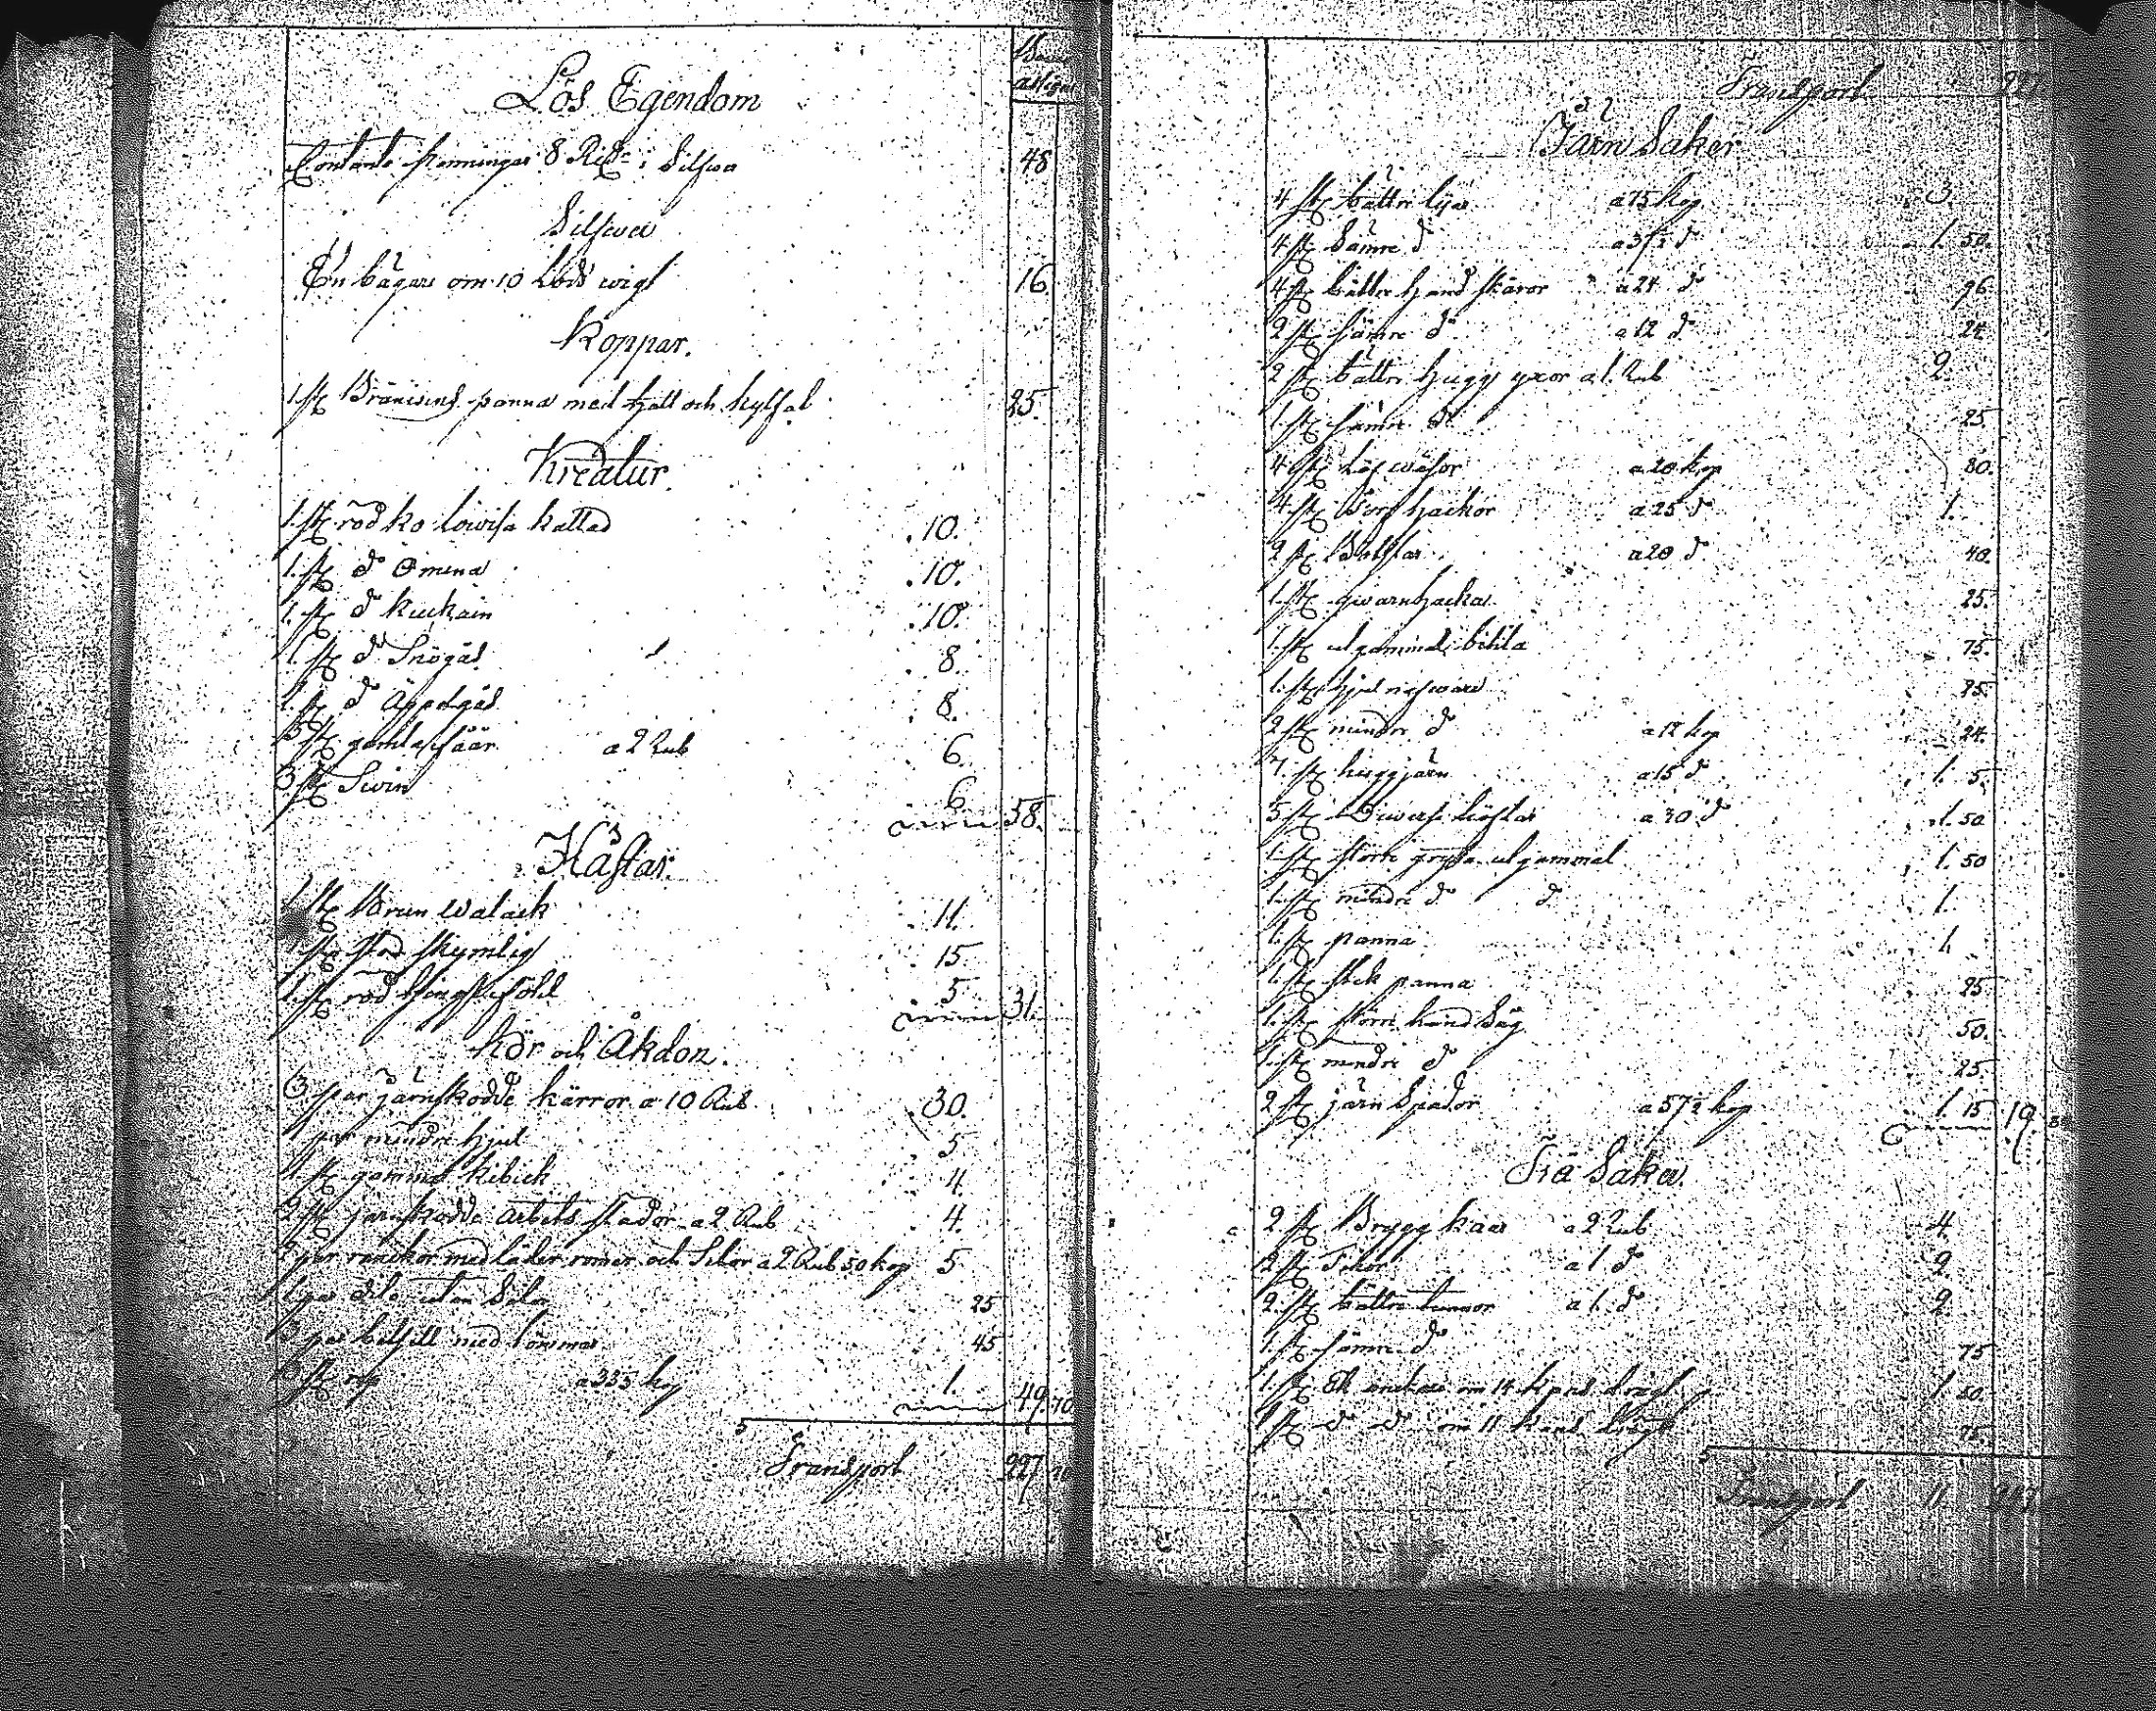 Lös Egendom
Contante Penningar 8 i Silfwer 48
Silfwer
En bägare om 10 Lods wigt 16.
Koppar.
1. st Bränwins panna med hatt och kylfat 25.
Kreatur.
1. st röd ko Lowisa kallad 10.
1. st do Omena 10.
1. st do kuckain 10.
1. st do Snögås 8.
1. st do Äppelgås 8.
3 st gamla fåår a 2 Rub 6.
3 st Swin 6 58.
Hästar.
1 st Brun Walack 11.
1. st Skymlig 15
1. st röd hingstföhl 5 31.
Kör och Åkdon.
3 par järnskodde kärror a 10 Rub 30.
1 par mindre hjul 5
1 st gammal kibick 4.
2 st järnskodde Arbets slädor a 2 Rub 4.
2 par med läder remar och Selar a 2 Rub 50 kop 5
1 par dito utan Selar 25
3 par betsill med tömmar 45
3 st a 33 1/3 kop 1. 49. 70
Transport 227 70
Transport 227
Järn Saker
4 st bättre liar a 75 kop 3.
4 st Sämre do a 37 1/2 do 1. 50.
4 st bättre hand skäror a 24 do 96.
2 st sämre do a 12 do 24
2 st bättre hugg yxor a 1. Rub 2.
1. st sämre do 25
4 st a 20 kop 80.
4 st hackor a 25 do 1.
2 st a 20 do 40.
1. st qwarnhacka 25.
1. st utgammal bihla 75.
1. st hjul nafware 25.
2 st mindre do a 12 kop 24.
7. st huggjärn a 15 do 1. 5.
5 st Diwerse a 30 do 1. 50
1. st större gryta utgammal 1. 50
1. st mindre do do 1.
1. st panna 1.
1. st stek panna 25
1. st större hand Såg 50.
1. st mindre do 25.
2 st järn Spador a 57 1/2 kop 1. 15 19.
Trä Saker.
2 st Brygg kaar a 2 Rub 4.
2 st a 1 do 2.
2 st bättre tunnor a 1. do 2
1. st sämre do 75
1. st om 14 1. 50
1 st do do om 11 75.
Transport 11